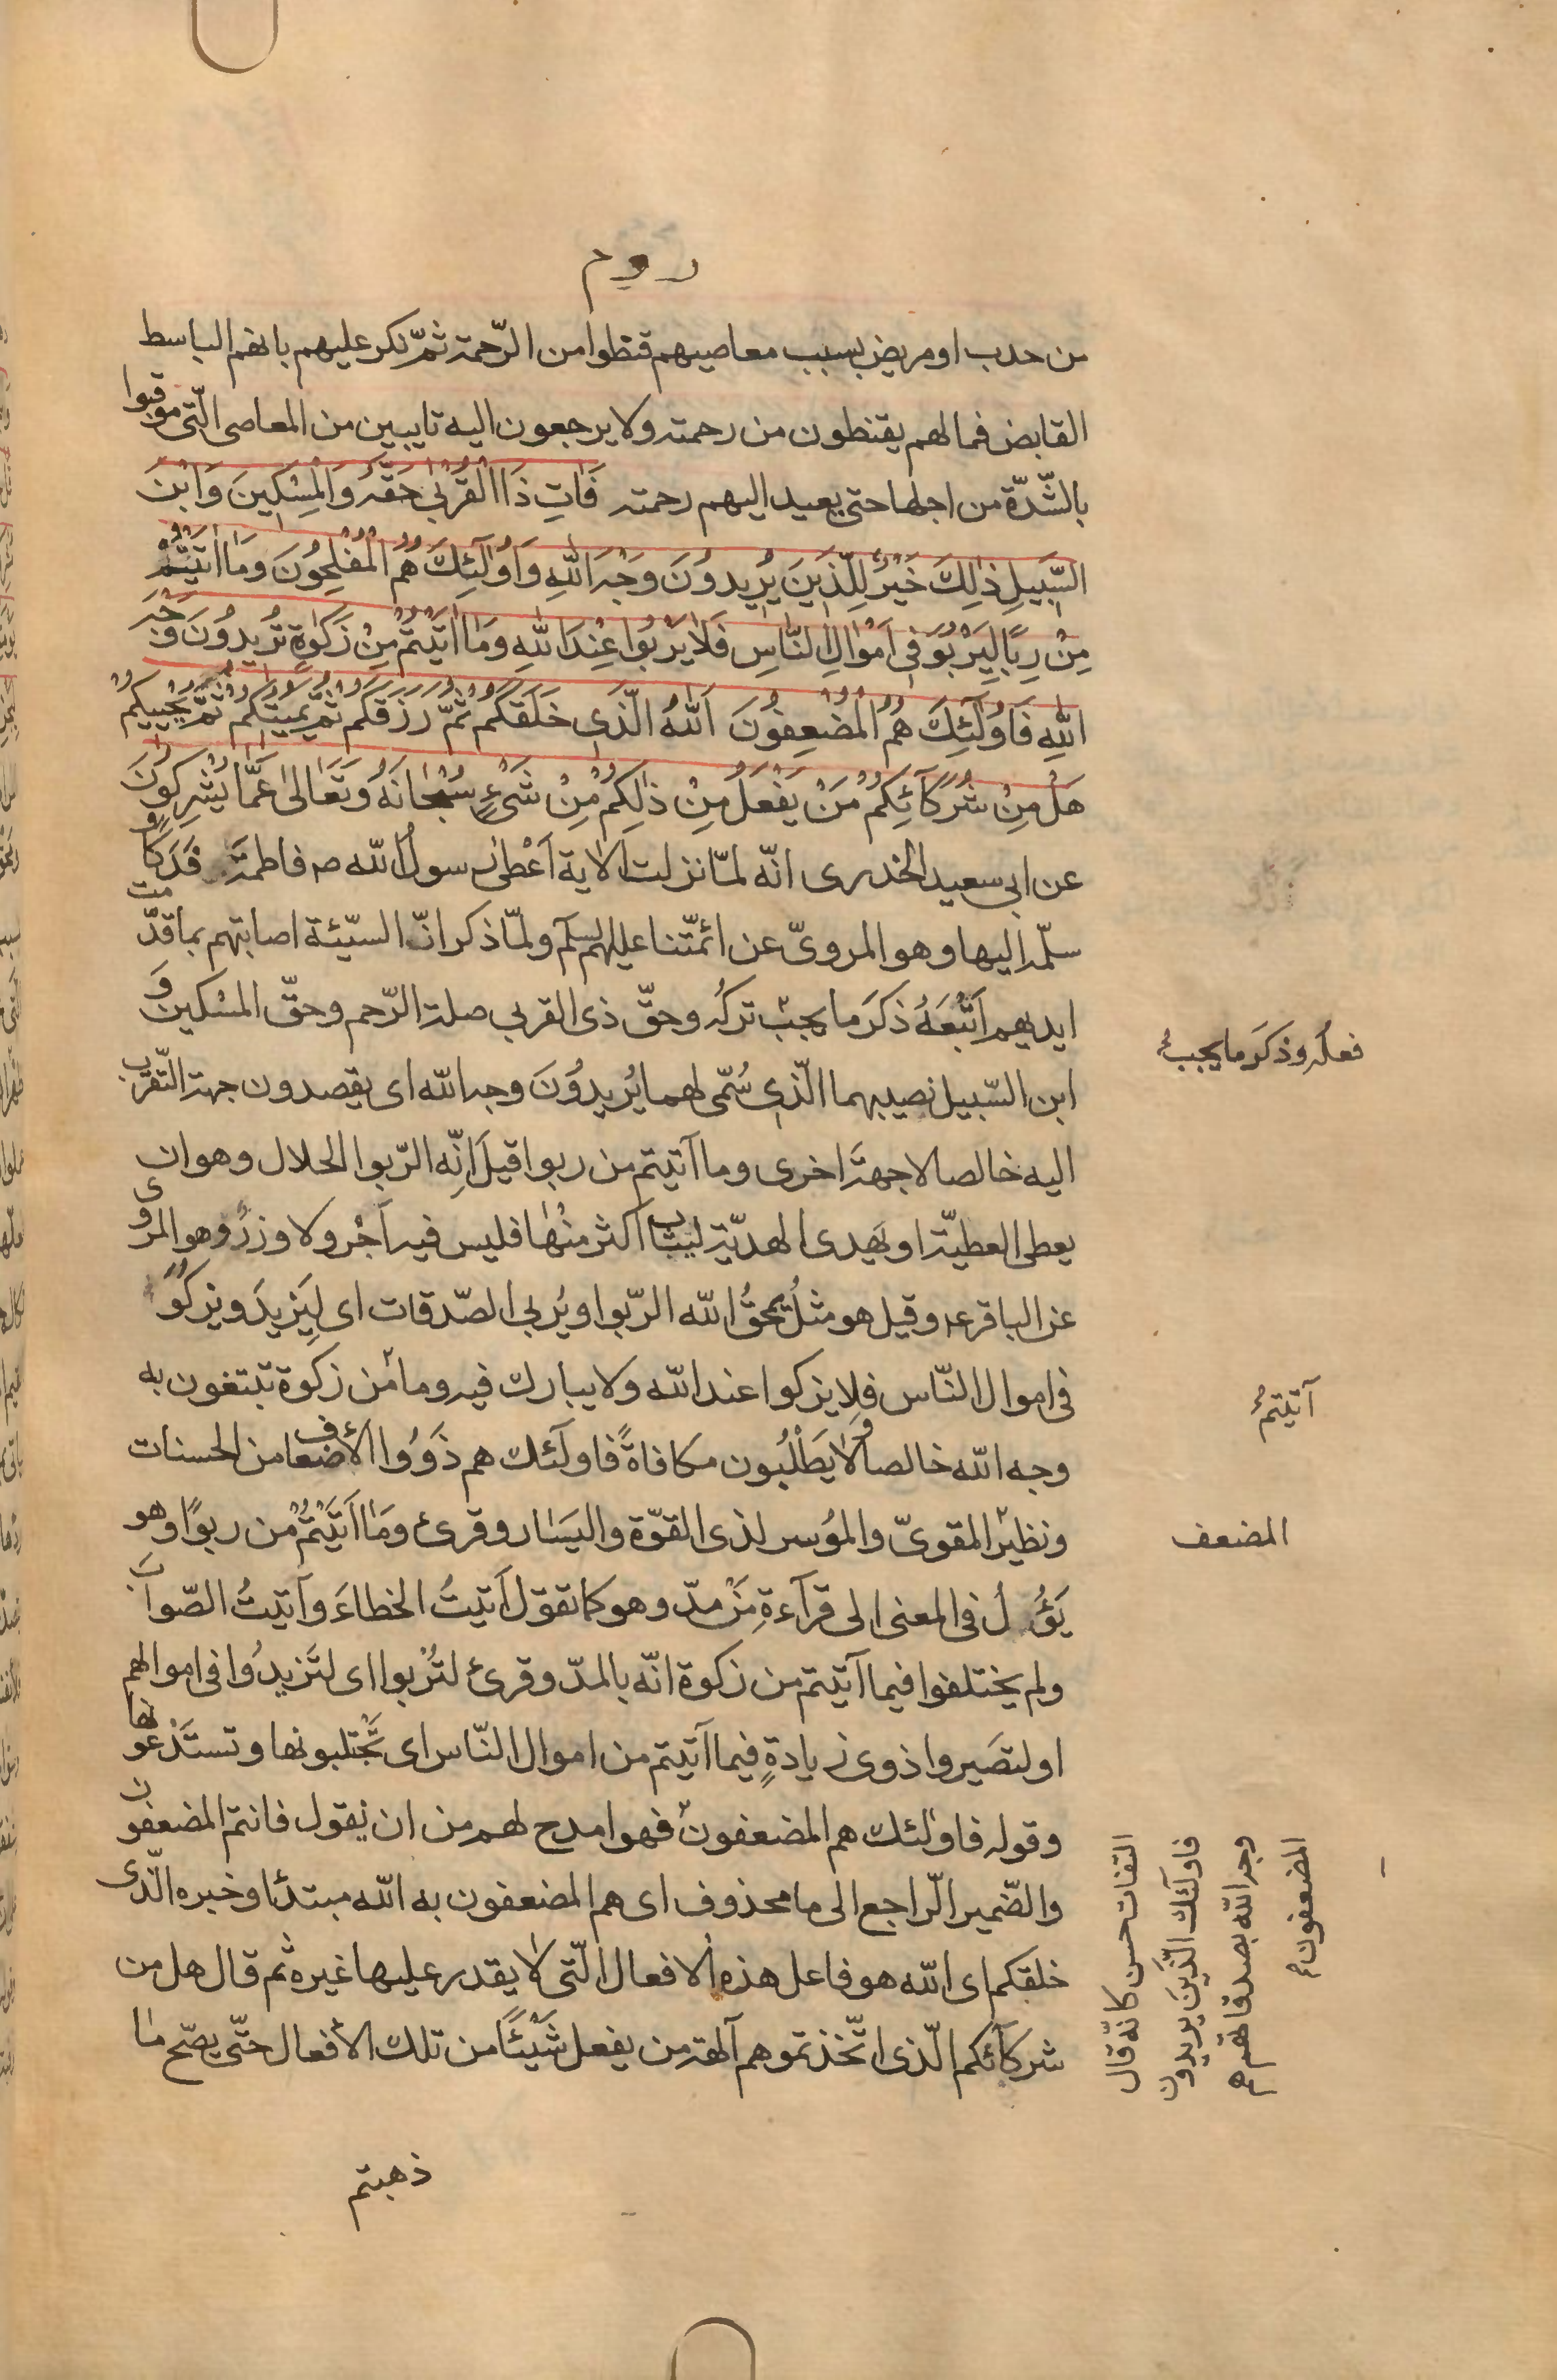 روم
من جدب او مريض بسبب معاصيهم قنطوا من الرّحمة ثمّ نكر عليهم بانهم الباسط
القابض فما لهم يقنطون من رحمته ولا يرجعون اليه تايبين من المعاصى الّتى عوقبوا
بالشّدّة من اجلها حتى يعيد اليهم رحمته فَاٰتِ ذَا الْقُرْبٰى حَقَّهُ وَالْمِسْكِينَ وَابْنَ
السَّبِيلِ ذٰلِكَ خَيْرٌ لِلَّذِينَ يُرِيدُونَ وَجْهَ اللّٰهِ وَاُولٰٓئِكَ هُمُ الْمُفْلِحُونَ وَمَا اٰتَيْتُمْ
مِنْ رِبًا لِيَرْبُوَ فِى اَمْوَالِ النَّاسِ فَلَا يَرْبُوا عِنْدَ اللّٰهِ وَمَا اٰتَيْتُمْ مِنْ زَكٰوةٍ تُرِيدُونَ وَجْهَ
اللّٰهِ فَاُولٰٓئِكَ هُمُ الْمُضْعِفُونَ اَللّٰهُ الَّذِى خَلَقَكُمْ ثُمَّ رَزَقَكُمْ ثُمَّ يُمِيتُكُمْ ثُمَّ يُحْيِيكُمْ
هَلْ مِنْ شُرَكَآئِكُمْ مَنْ يَفْعَلُ مِنْ ذٰلِكُمْ مِنْ شَىْءٍ سُبْحَانَهُ وَتَعَالٰى عَمَّا يُشْرِكُونَ
عن ابى سعيد الخدرى انّه لمّا نزلت الاية اَعْطىٰ رسول اللّه ص فاطمةَ فَدَكًا و
سلّمه اليها وهو المروىّ عن ائمّتنا عليهم السلم ولمّا ذكر انّ السيّئة اصابتهم بما قدّمت
ايديهم اَتْبَعَهُ ذكَرَ ما يجب تركه وحقّ ذى القربى صلة الرّحم وحقّ المسْكين و
ابن السّبيل نصيبهما الّذى سُمّى لهما يُريدُونَ وجه اللّه اى يقصدون جهة التّقرّب
اليه خالصا لا جهةً اخرى وما آتيتم من ربوا قيل اِنّه الرّبوا الحلال وهو ان
يعطى العطيّة او يَهدى الهديّة ليثاب اكثر منْها فليس فيه اَجْر ولا وزرٌ وهو المروى
عن الباقر ع وقيل هو مثلُ يمحقُ اللّه الرّبوا ويُربى الصّدقات اى لِيَزيدَ ويزكوَ
فى اموال النّاس فلا يزكوا عند اللّه ولا يبارك فيه وما من زكوة تبتغون به
وجه اللّه خالصا ولا يَطْلُبُون مكافاةً فاولَئك هم ذَوُوا الأضعاف من الحسنات
ونظير المقوىّ والمُوسر لذى القوّة واليَسَار وقرئ وَمَا اَتَيْتُمْ من ربوًا وهو
يَؤُلُ فى المعنى الى قرآءةِ مَنْ مدّ وهو كما تقول اَتيتُ الخطاءَ وآتيتُ الصّوابَ
ولم يختلفوا فيما آتيتم من زكوة انّه بالمدّ وقرئ لتُرْبوا اى لتَزيدُوا فى اموالهم
او لتصَيروا ذوى زيادةٍ فيما آتيتم من اموال النّاس اى تَجْتلبونها وتستَدْعونها
وقوله فاولئك هم المضعفون فهو امدح لهم من ان يقول فانتم المضعفون
والضّمير الرّاجع الى ما محذوف اى هم المضعفون به اللّه مبتدئا وخبره الّذى
خلقكم اى اللّه هو فاعل هذه الافعال الّتى لا يقدر عليها غيره ثم قال هل من
شركآئكم الّذى اتّخذتموهم آلهة من يفعل شَيْئًا من تلك الأفعال حتّى يصّح ما
ذهبتم
فعله وذكَرَ ما يجب
آتيتم
المضعف
التفات حسن كانّه قال
فاولَئك الّذينَ يريدون
وجه اللّه بصدقاتهم هم
المضعفون